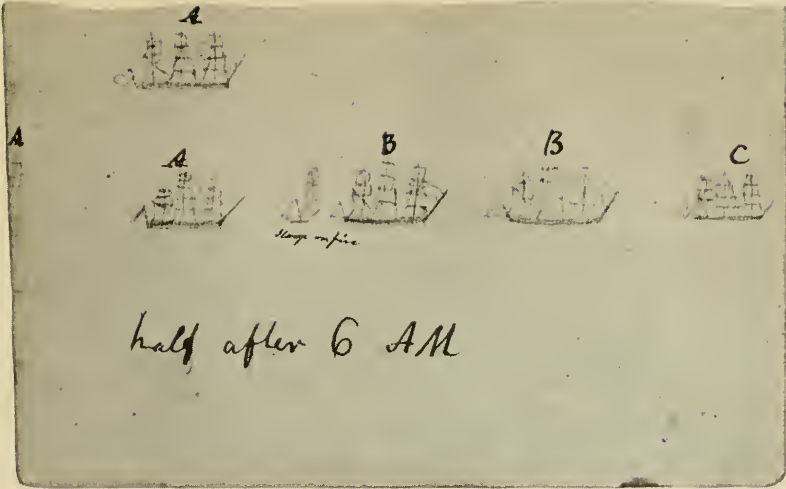 A
A A B B C
Sloop on fire
half after 6 AM